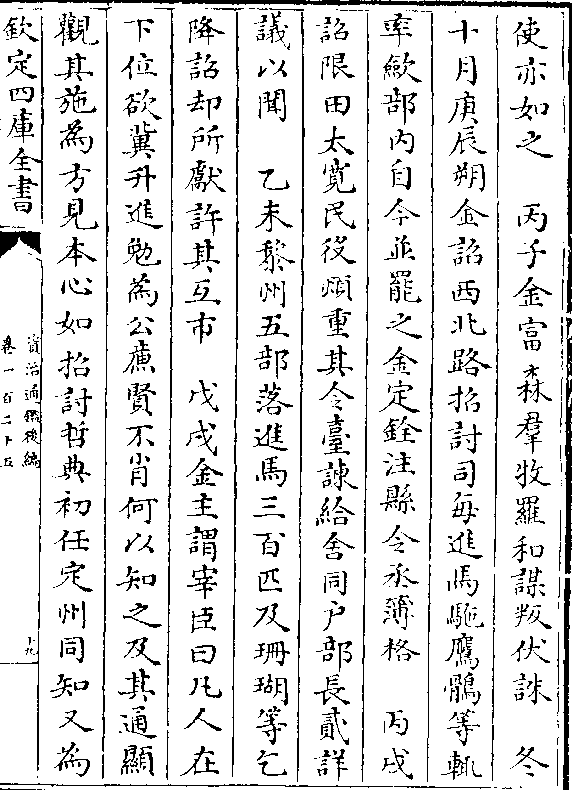 使亦如之　丙子金富森羣牧羅和謀叛伏誅　冬
十月庚辰朔金詔西北路招討司每進馬駞鷹鶻等輒
率歛部內自今並罷之金定銓注縣令丞簿格　丙戌
詔限田太寛民役煩重其令臺諫給舍同户部長貳詳
議以聞　乙未黎州五部落進馬三百匹及珊瑚等乞
降詔却所獻許其互市　戊戌金主謂宰臣曰凡人在
下位欲冀升進勉為公廉賢不肖何以知之及其通顯
觀其施為方見本心如招討哲典初任定州同知又為
欽定四庫全書
資治通鑑後編
卷一百二十五
十九